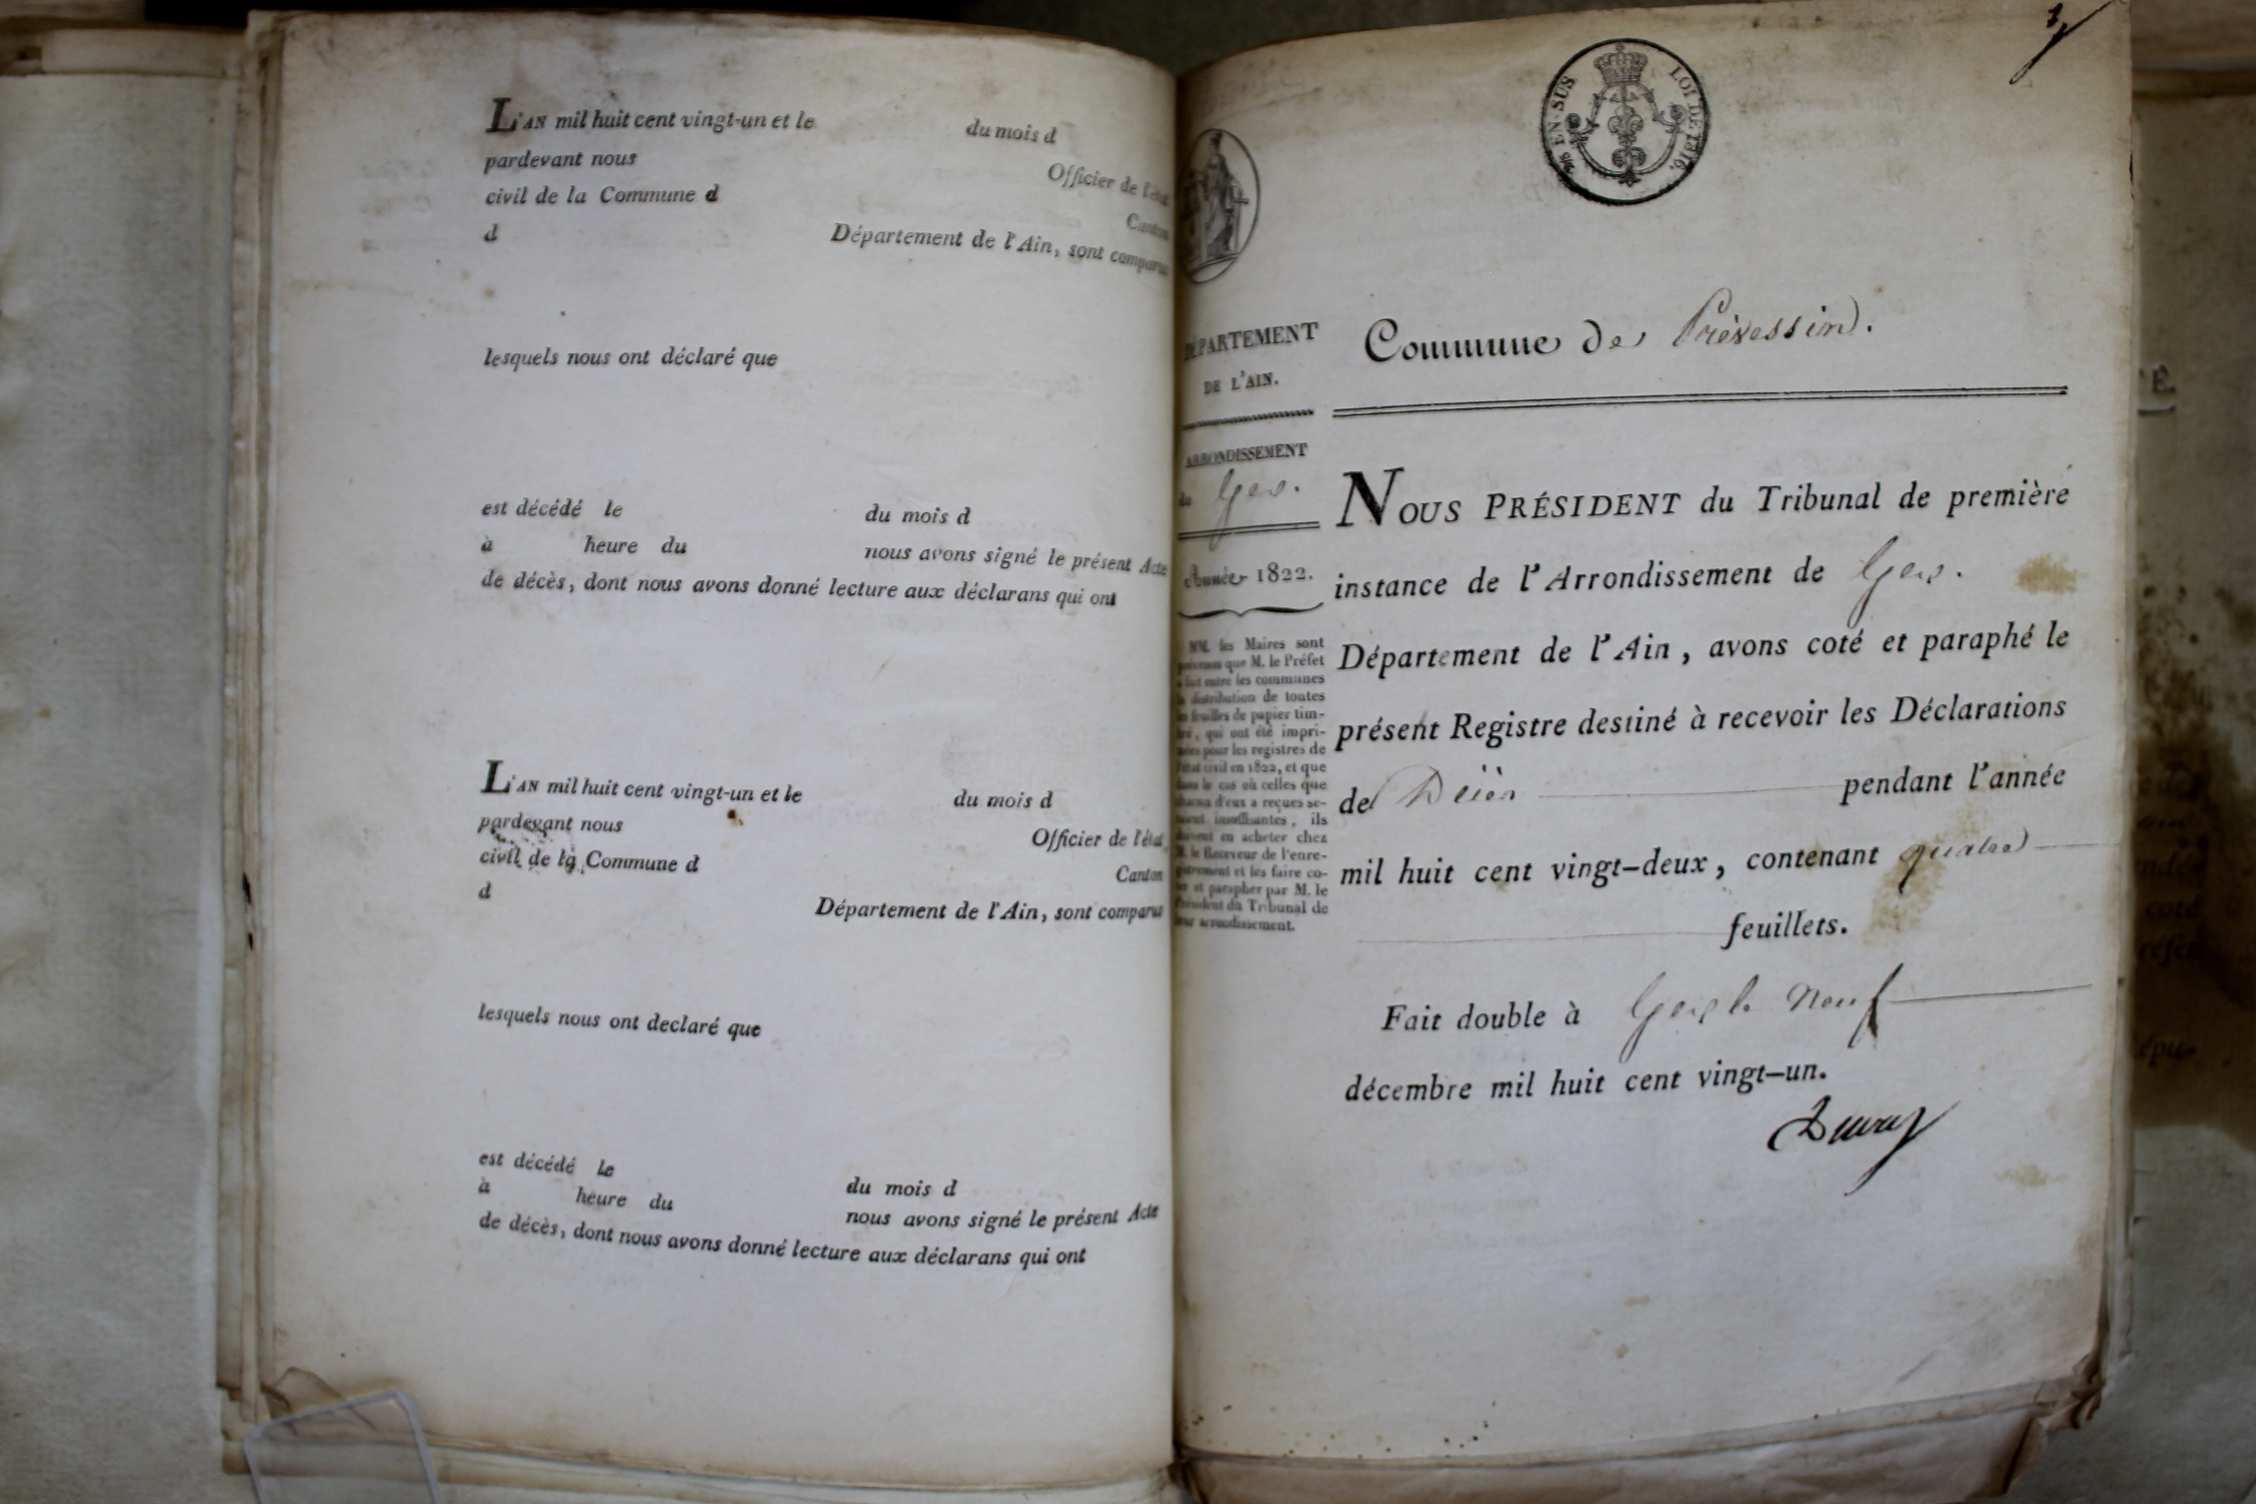 L'AN mil huit cent vingt-un et le du mois d
pardevant nous Officier de l'état
civil de la Commune d Canton
d Département de l'Ain, sont comparus
lesquels nous ont déclaré que
est décédé le du mois d
à heure du nous avons signé le présent Acte
de décès, dont nous avons donné lecture aux déclarans qui ont
L'AN mil huit cent vingt-un et le du mois d
pardevant nous Officier de l'état
civil de la Commune d Canton
d Département de l'Ain, sont comparus
lesquels nous ont declaré que
est décédé le du mois d
à heure du nous avons signé le présent Acte
de décès, dont nous avons donné lecture aux déclarans qui ont
EN SUS LOI DE 1816.
DÉPARTEMENT
DE L'AIN.
ARRONDISSEMENT
de Gex.
Année 1822.
MM. les Maires sont
prévenus que M. le Préfet
a fait entre les communes
la distribution de toutes
les feuilles de papier tim-
bré, qui ont été impri-
mées pour les registres de
l'état civil en 1822, et que
dans le cas où celles que
chacun d'eux a reçues se-
raient insuffisantes, ils
doivent en acheter chez
M. le Receveur de l'enre-
gistrement et les faire co-
ter et parapher par M. le
Président du Tribunal de
leur arrondissement.
Commune de Prévessin.
NOUS PRÉSIDENT du Tribunal de première
instance de l'Arrondissement de Gex.
Département de l'Ain, avons coté et paraphé le
présent Registre destiné à recevoir les Déclarations
de Décès pendant l'année
mil huit cent vingt-deux, contenant quatre
feuillets.
Fait double à Gex le neuf
décembre mil huit cent vingt-un.